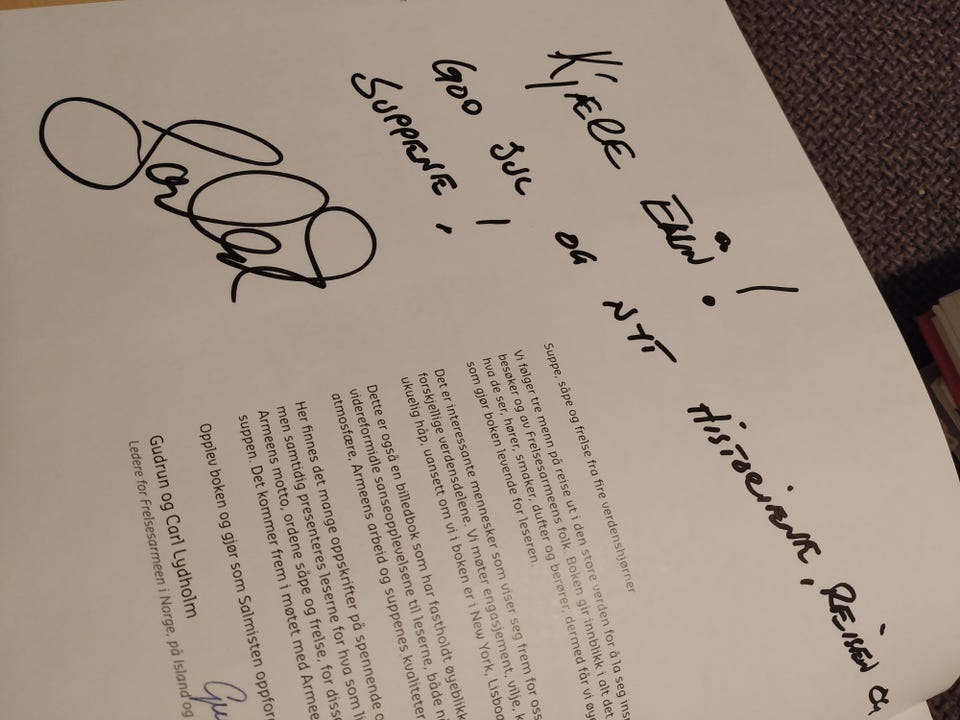 KJÆRE
GOD JUL OG NYT HISTORIENE, REISEN OG
SUPPENE!
Suppe, såpe og frelse fra fire verdenshjørner
Vi følger tre menn på reise ut i den store verden for å la seg
besøker og av Frelsesarmeens folk. Boken gir innblikk i alt det
hva de ser, hører, smaker, dufter og berører, dermed får vi
som gjør boken levende for leseren.
Det er interessante mennesker som viser seg frem for oss
forskjellige verdensdelene. Vi møter engasjement, vilje,
ukuelig håp, uansett om vi i boken er i New York,
Dette er også en billedbok som har fastholdt
videreformidle sanseopplevelsene til leserne, både
atmosfære, Armeens arbeid og suppenes kvaliteter
Her finnes det mange oppskrifter på spennende
men samtidig presenteres leserne for hva som
Armeens motto, ordene såpe og frelse, for
suppen. Det kommer frem i møtet med
Opplev boken og gjør som Salmisten
Gudrun og Carl Lydholm
Ledere for Frelsesarmeen i Norge, på Island og